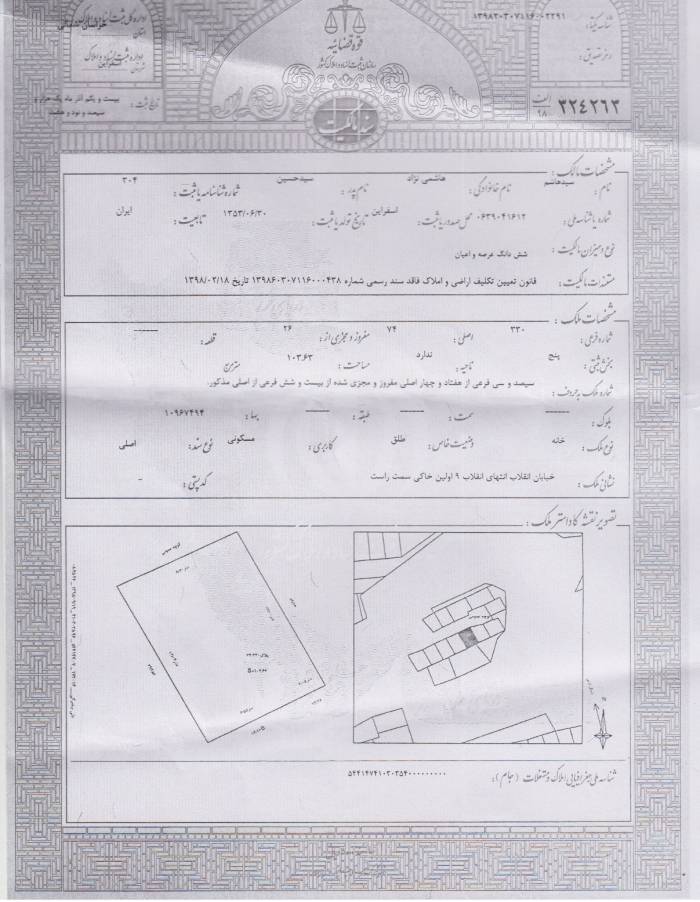 شناسه یکتا: ۱۳۹۸۲۰۳۰۷۱۱۶۰۰۲۲۹۱
رمز تصدیق:
قوه قضائیه
سازمان ثبت اسناد و املاک کشور
اداره کل ثبت اسناد و املاک استان
اداره ثبت اسناد و املاک اسفراین
۳۲۴۲۶۲ الف ۹۸
تاریخ ثبت: بیست و یکم آذر ماه یک هزار و سیصد و نود و هشت
سند مالکیت
مشخصات مالک:
نام: سیدهاشم نام خانوادگی: هاشمی نژاد نام پدر: سیدحسین شماره شناسنامه یا ثبت: ۳۰۴
شماره یا شناسه ملی: ۰۶۳۹۰۴۱۶۱۲ محل صدور یا ثبت: اسفراین تاریخ تولد یا ثبت: ۱۳۵۳/۰۶/۳۰ تابعیت: ایران
نوع و میزان مالکیت: شش دانگ عرصه و اعیان
مستندات مالکیت: قانون تعیین تکلیف اراضی و املاک فاقد سند رسمی شماره ۱۳۹۸۶۰۳۰۷۱۱۶۰۰۰۴۳۸ تاریخ ۱۳۹۸/۰۲/۱۸
مشخصات ملک:
شماره فرعی: ۳۳۰ اصلی: ۷۴ مفروز و مجزی از: ۲۶ قطعه: ------
بخش ثبتی: پنج ناحیه: ندارد مساحت: ۱۰۳.۶۳ مترمربع
شماره ملک به حروف: سیصد و سی فرعی از هفتاد و چهار اصلی مفروز و مجزی شده از بیست و شش فرعی از اصلی مذکور.
بلوک: ------ سمت: ------ طبقه: ------ بها: ۱۰۹۶۷۴۹۴
نوع ملک: خانه وضعیت خاص: طلق کاربری: مسکونی نوع سند: اصلی
نشانی ملک: خیابان انقلاب انتهای انقلاب ۹ اولین خاکی سمت راست کدپستی: -
تصویر نقشه کاداستر ملک:
شناسه ملی جغرافیایی املاک و مستغلات (جام): ۵۴۴۱۴۷۴۱۰۳۰۳۵۴۰۰۰۰۰۰۰۰۰۰